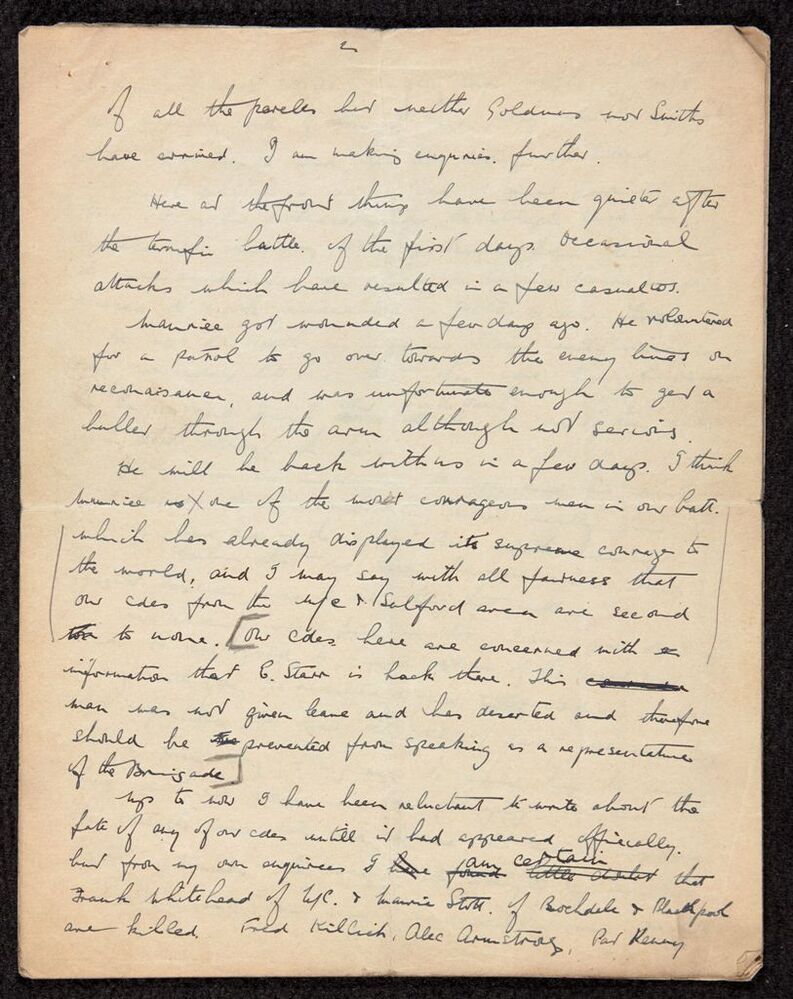 2
of all the parcels but neither Goldmans nor Smiths
have arrived. I am making enquries. further.
Here at the front things have been quieter after
the terrific battle. of the first days. Occasional
attacks which have resulted in a few casualties.
Maurice got wounded a few days ago. He volunteered
for a patrol to go over towards the enemy lines on
reconaisance, and was unfortunate enough to get a
bullet through the arm although not serious.
He will be back with us in a few days. I think
Maurice is X one of the most courageous men in our batt.
which has already displayed its supreme courage to
the world, and I may say with all fairness that
our cdes from the M/c & Salford area are second
to none. [Our cdes. here are concerned with
information that E. Starr is back there. This
man was not given leave and has deserted and therefore
should be prevented from speaking as a representative
of the Brigade]
Up to now I have been reluctant to write about the
fate of any of our cdes untill it had appeared officially.
but from my own enquires I am certain that
Frank Whitehead of M/C. & Maurice Stott. of Rochdale & Blackpool
are killed. Fred Killick, Alec Armstrong, Pat Kenny